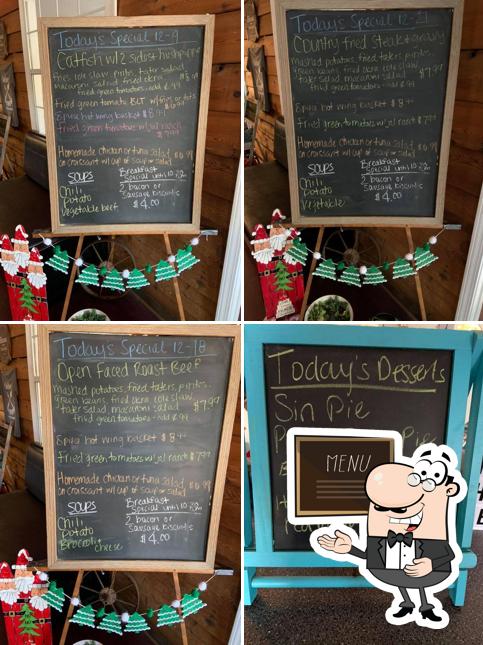 Today's Special 12-9
Catfish w/2 sides & hushpuppie
fries, cole slaw, pintos, tater salad
macaroni salad, fried okra
fried green tomatoes - add $.99
Fried green tomato BLT w/fries or tots
Spicy hot wing basket $8.99
Fried green tomatoes w/jal ranch
$7.99
Homemade chicken or tuna salad, $6.99
on croissant w/cup of soup or salad
Soups
Chili
Potato
Vegetable beef
Breakfast
Special until 10:30
2 bacon or
Sausage biscuits
$4.00
Today's Special 12-21
Country fried steak & gravy
Mashed potatoes, fried taters, pintos,
green beans, fried okra, cole slaw,
tater salad, macaroni salad $7.99
fried green tomatoes - add $.99
Spicy hot wing basket $8.99
Fried green tomatoes w/jal ranch $7.99
Homemade chicken or tuna salad, $6.99
on croissant w/cup of soup or salad
Soups
Chili
Potato
Vegetable
Breakfast
Special until 10:30
2 bacon or
Sausage biscuits
$4.00
Today's Special 12-18
Open Faced Roast Beef
Mashed potatoes, fried taters, pintos,
green beans, fried okra, cole slaw,
tater salad, macaroni salad $7.99
fried green tomatoes - add $.99
Spicy hot wing basket $8.99
Fried green tomatoes w/jal ranch $7.99
Homemade chicken or tuna salad, $6.99
on croissant w/cup of soup or salad
Soups
Chili
Potato
Broccoli & cheese
Breakfast
Special until 10:30
2 bacon or
Sausage biscuits
$4.00
Today's Desserts
Sin Pie
Pie
MENU